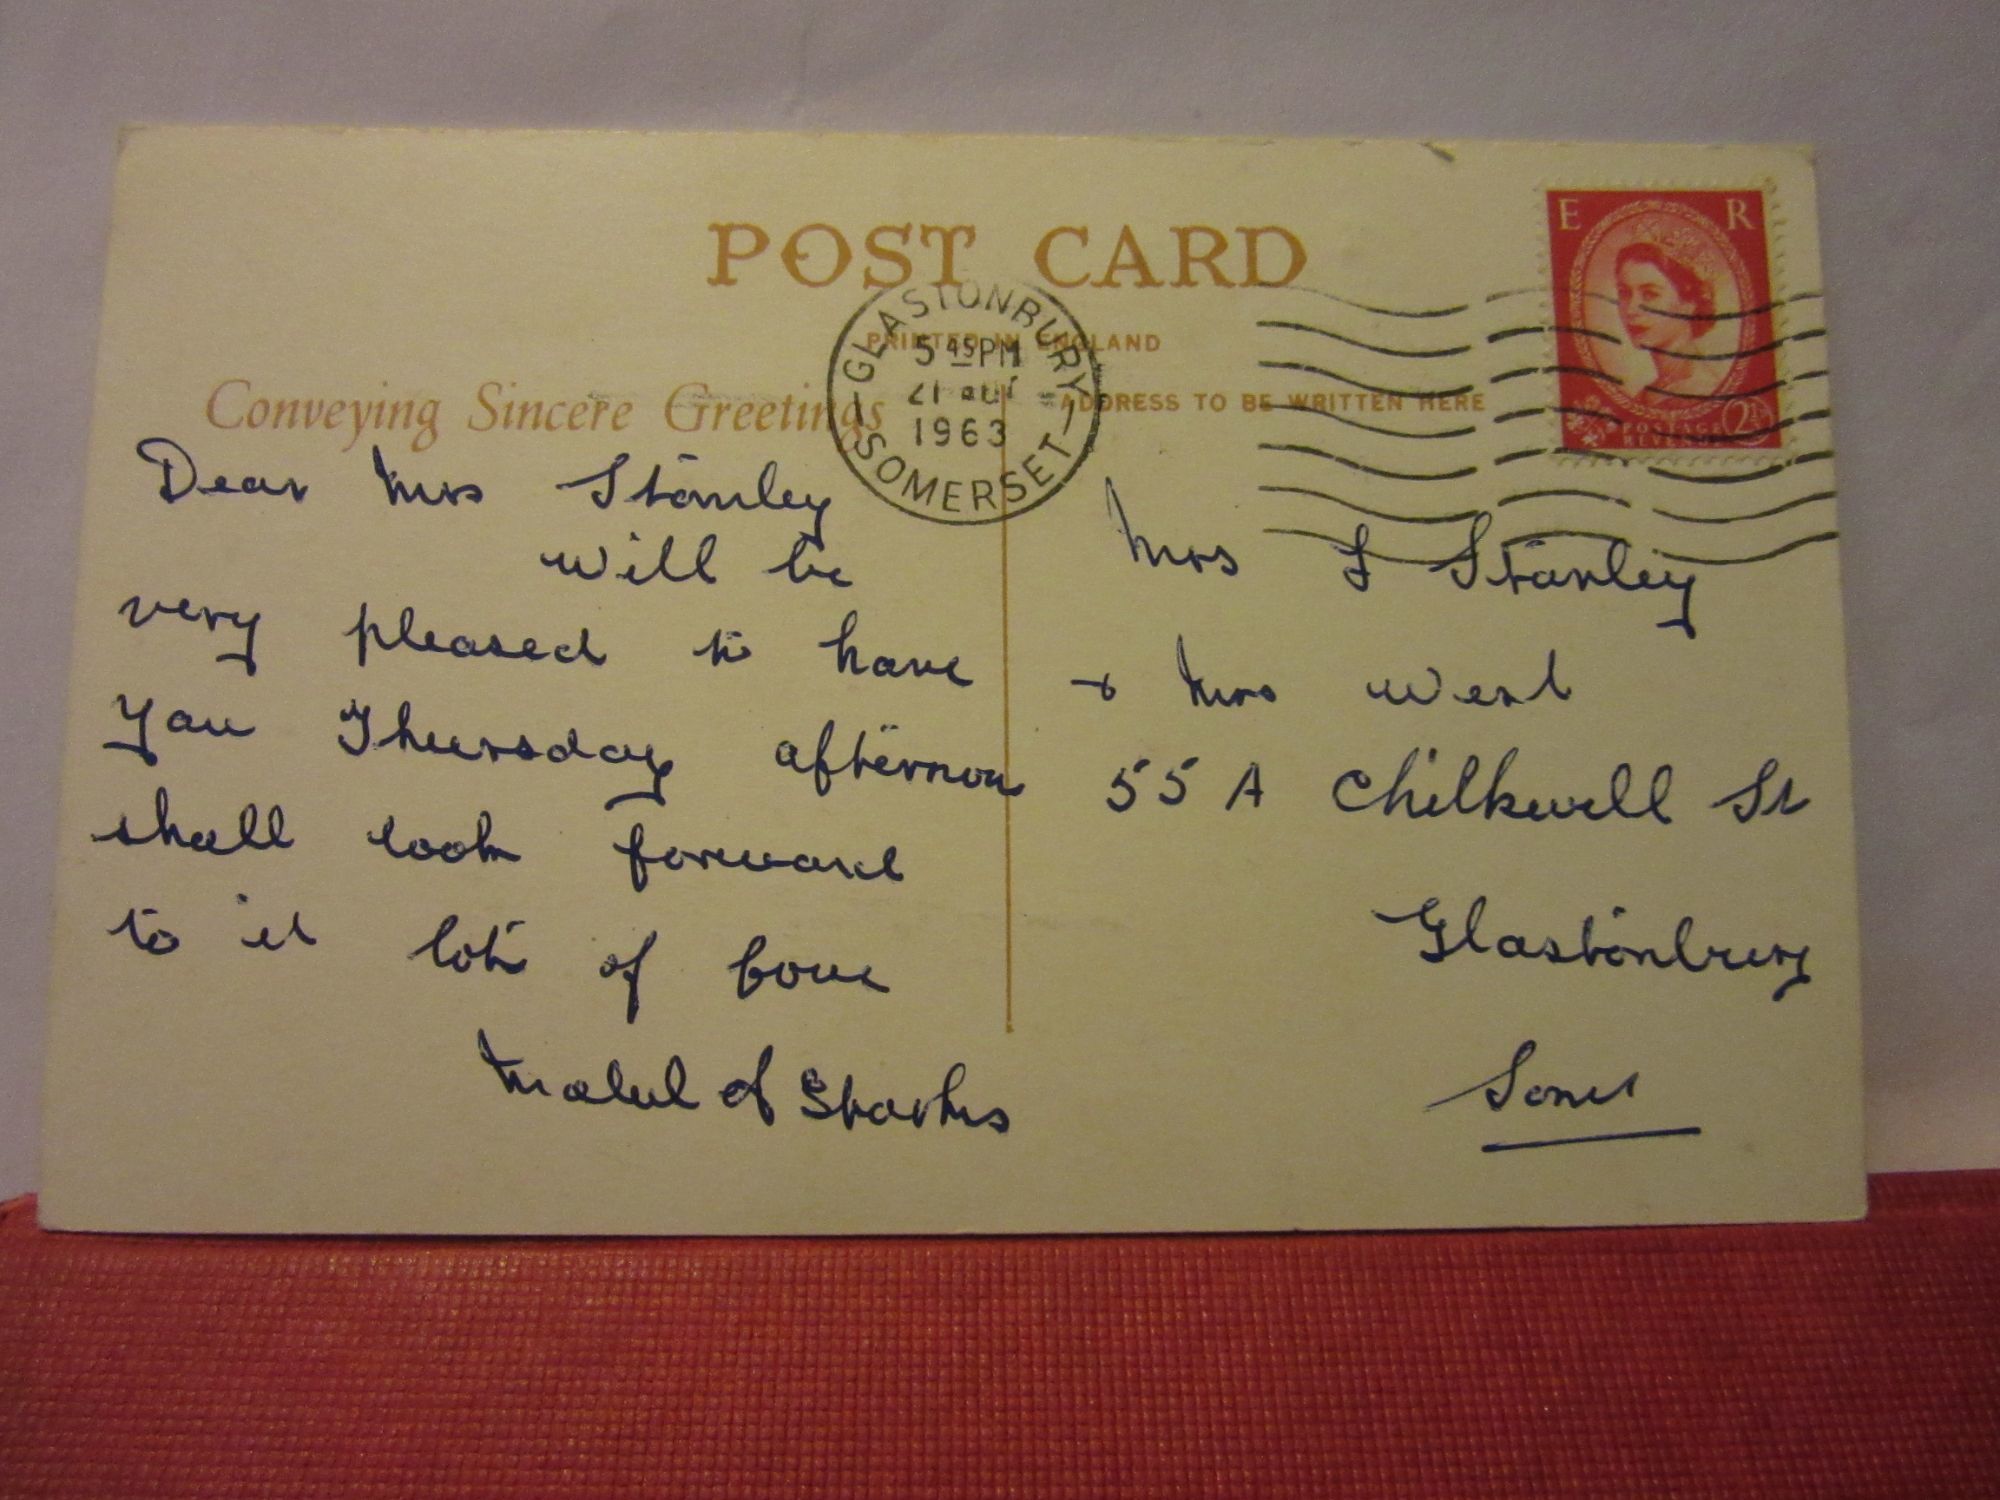 POST CARD
PRINTED IN ENGLAND
Conveying Sincere Greetings
ADDRESS TO BE WRITTEN HERE
GLASTONBURY
5 45 PM
21
1963
SOMERSET
E R
POSTAGE
REVENUE
2½
Dear Mrs Stanley
will be
very pleased to have
you Thursday afternoon
shall look forward
to it lots of love
Mabel
Mrs Stanley
+ Mrs West
55 A Chilkwell St
Glastonbury
Som